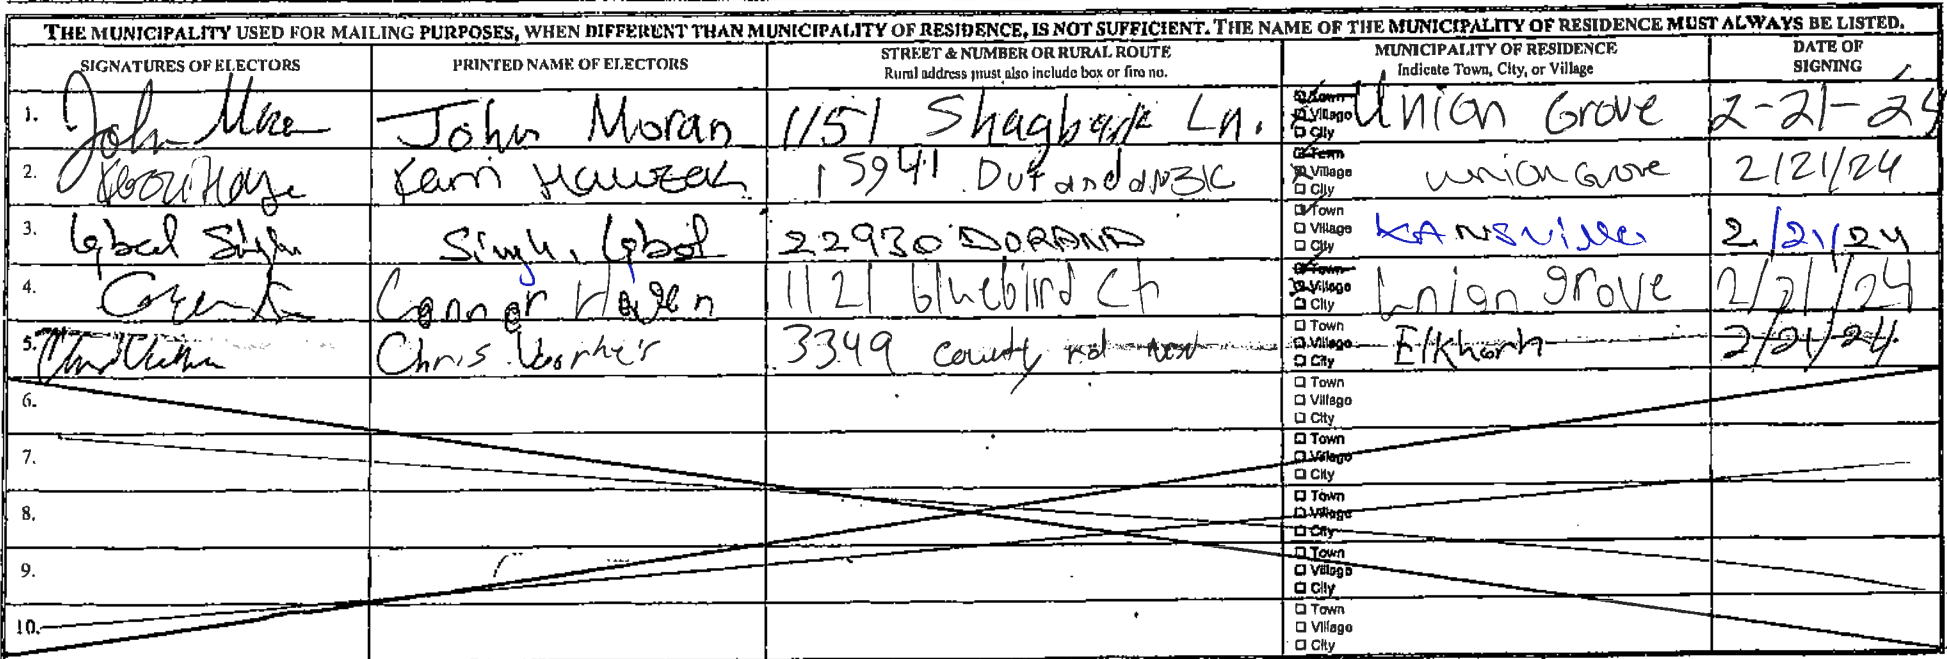 THE MUNICIPALITY USED FOR MAILING PURPOSES, WHEN DIFFERENT THAN MUNICIPALITY OF RESIDENCE, IS NOT SUFFICIENT. THE NAME OF THE MUNICIPALITY OF RESIDENCE MUST ALWAYS BE LISTED.
SIGNATURES OF ELECTORS PRINTED NAME OF ELECTORS STREET & NUMBER OR RURAL ROUTE MUNICIPALITY OF RESIDENCE DATE OF
Rural address must also include box or fire no. Indicate Town, City, or Village SIGNING
1. John John Moran 1151 Shagbark Ln. Town Village City Union Grove 2-21-24
2. 15941 Town Village City union Grove 2/21/24
3. Iqbal Singh Singh, Iqbal 22930 DORAND Town Village City KANSVille 2/21/24
4. Connor 1121 bluebird Ct Town Village City Union grove 2/21/24
5. Chris 3349 county rd Town Village City Elkhorn 2/21/24
6. Town Village City
7. Town Village City
8. Town Village City
9. Town Village City
10. Town Village City